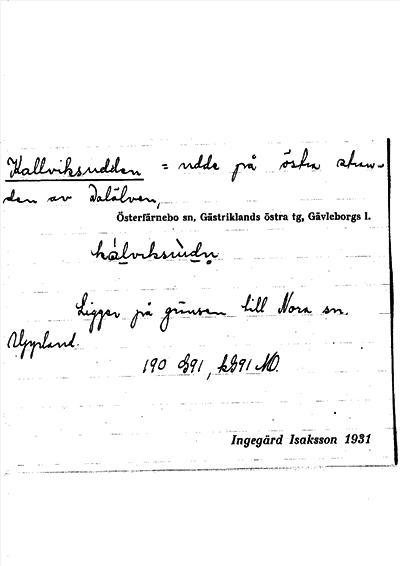 Kallviksudden = udde på östra stran-
den av Dalälven,
Österfärnebo sn, Gästriklands östra tg, Gävleborgs l.
Ligger på gränsen till Nora sn.
Uppland.
190 G91, kG91 NO.
Ingegärd Isaksson 1931